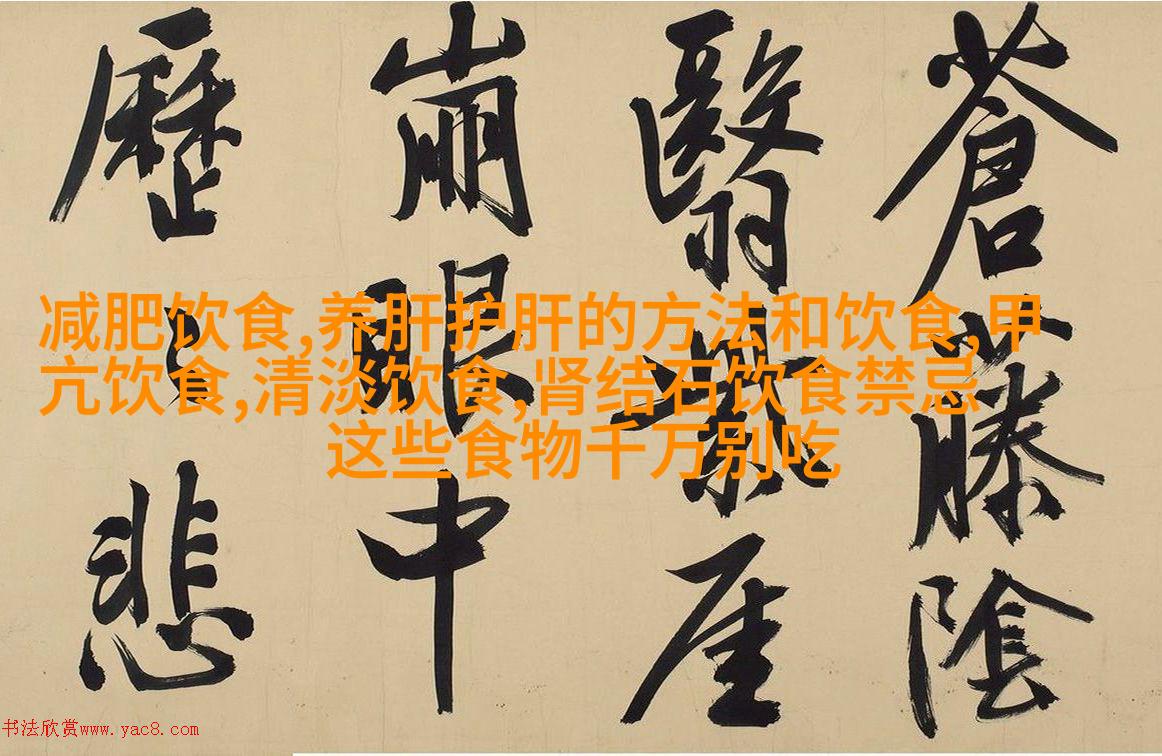 蒼藤陰
翳紫厓
崩眼中
歷〻悲
减肥饮食,养肝护肝的方法和饮食,甲
亢饮食,清淡饮食,肾结石饮食禁忌
这些食物千万别吃
书法欣赏www.yac8.com